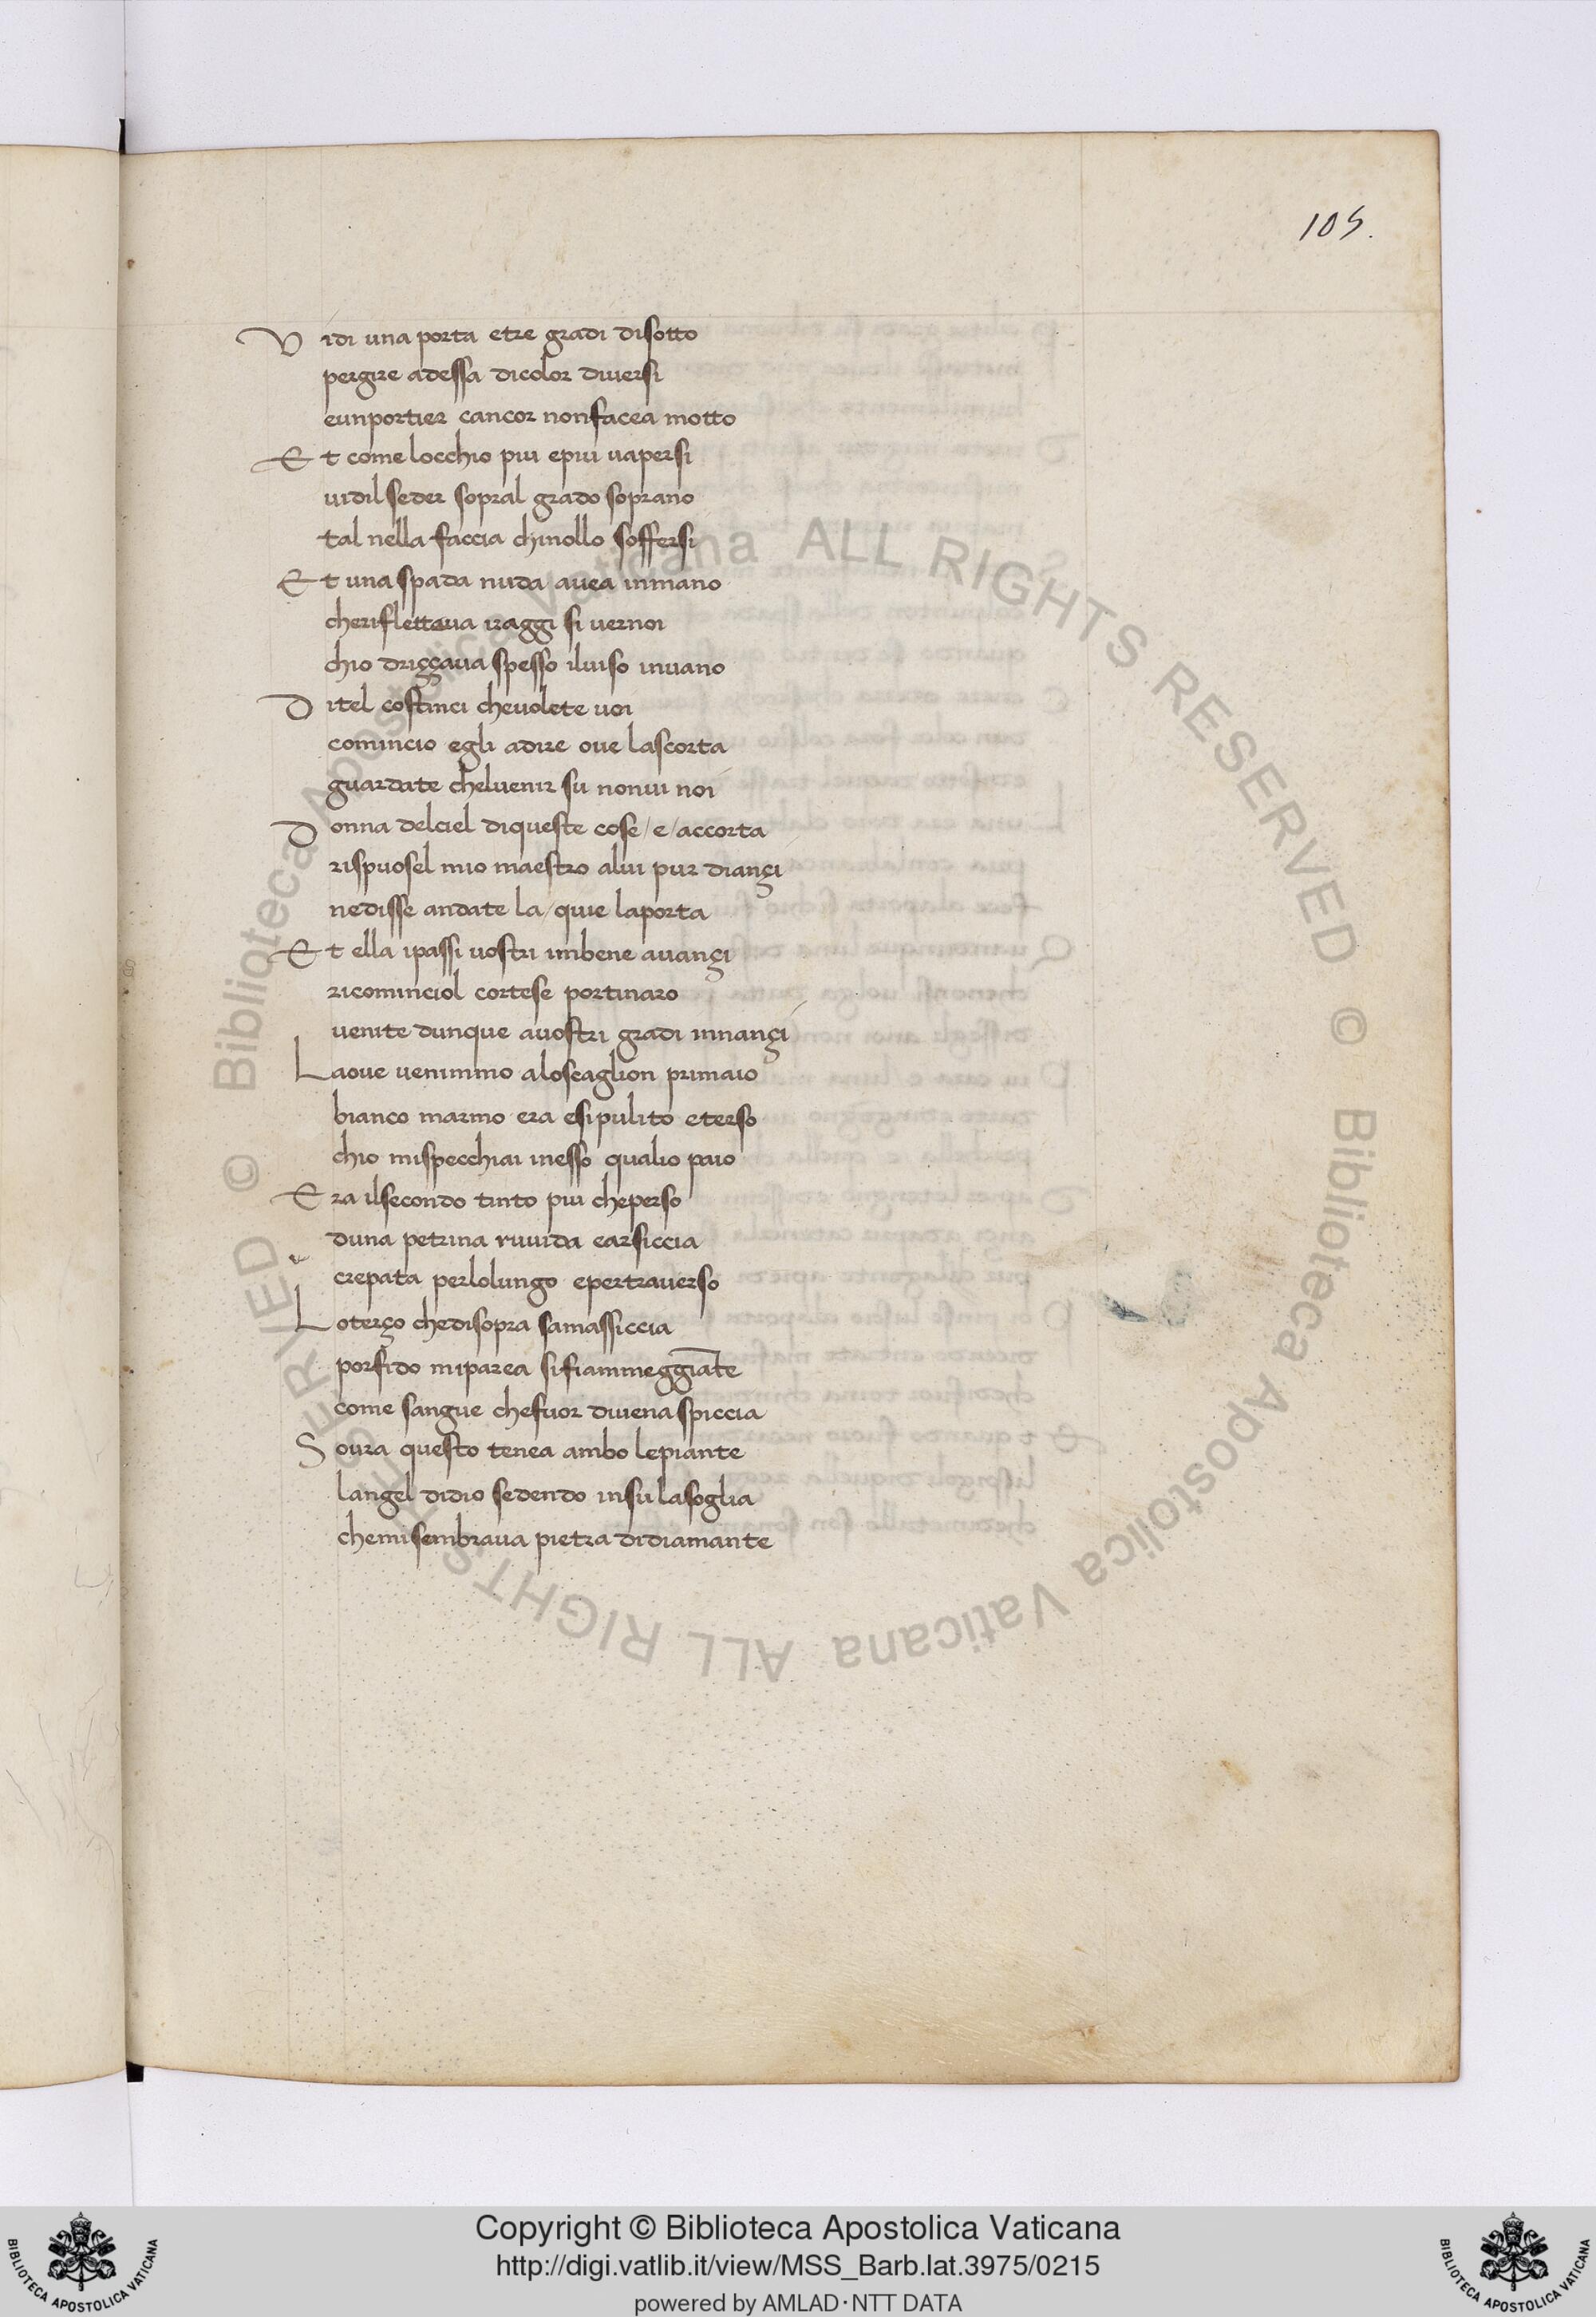 105.
Vidi una porta etre gradi disotto
pergire adessa dicolor diuersi
eunportier cancor nonfacea motto
Et come locchio piu epiu uapersi
uidil seder sopral grado soprano
tal nella faccia chinollo soffersi
Et una spada nuda auea inmano
cherifletteua iraggi si uernoi
chio driççaua spesso iluiso inuano
Ditel costinci cheuolete uoi
comincio egli adire oue lascorta
guardate cheluenir su nonui noi
Donna delciel diqueste cose/e/accorta
rispuosel mio maestro alui pur diançi
nedisse andate la/quie laporta
Et ella ipassi uostri imbene auançi
ricominciol cortese portinaro
uenite dunque auostri gradi innançi
Laoue uenimmo aloscaglion primaio
bianco marmo era esipulito eterso
chio mispecchiai inesso qualio paio
Era ilsecondo tinto piu cheperso
duna petrina ruuida earsiccia
crepata perlolungo epertrauerso
Loterço chedisopra samassiccia
porfido miparea sifiammeggiāte
come sangue chefuor diuena spiccia
Soura questo tenea ambo lepiante
langel didio sedendo insu lasoglia
chemisembraua pietra didiamante
© Biblioteca Apostolica Vaticana ALL RIGHTS RESERVED © Biblioteca Apostolica Vaticana ALL RIGHTS RESERVED
Copyright © Biblioteca Apostolica Vaticana
http://digi.vatlib.it/view/MSS_Barb.lat.3975/0215
powered by AMLAD·NTT DATA
BIBLIOTECA APOSTOLICA VATICANA
BIBLIOTECA APOSTOLICA VATICANA